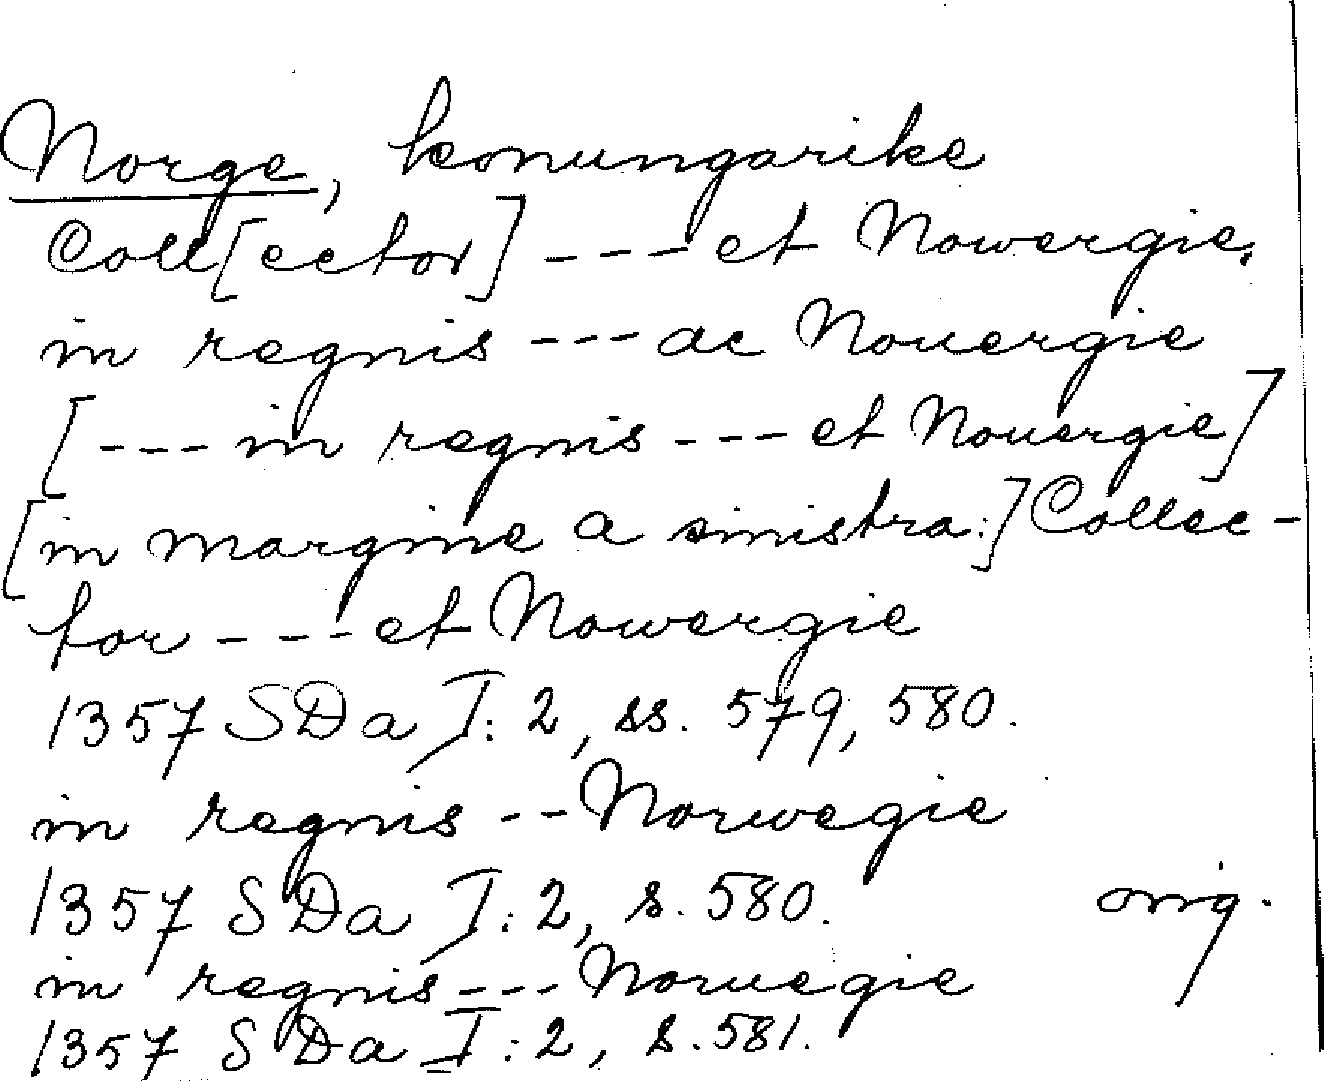 Norge, konungarike
Coll[ector] --- et Nowergie.
in regnis --- ac Nouergie
[--- in regnis --- et Nouergie]
[in margine a sinistra:] Collec-
tor --- et Nowergie
1357 SDa I:2, ss. 579, 580.
in regnis -- Norwegie
1357 SDa I:2, s. 580. orig.
in regnis --- Noruegie
1357 SDa I:2, s. 581.